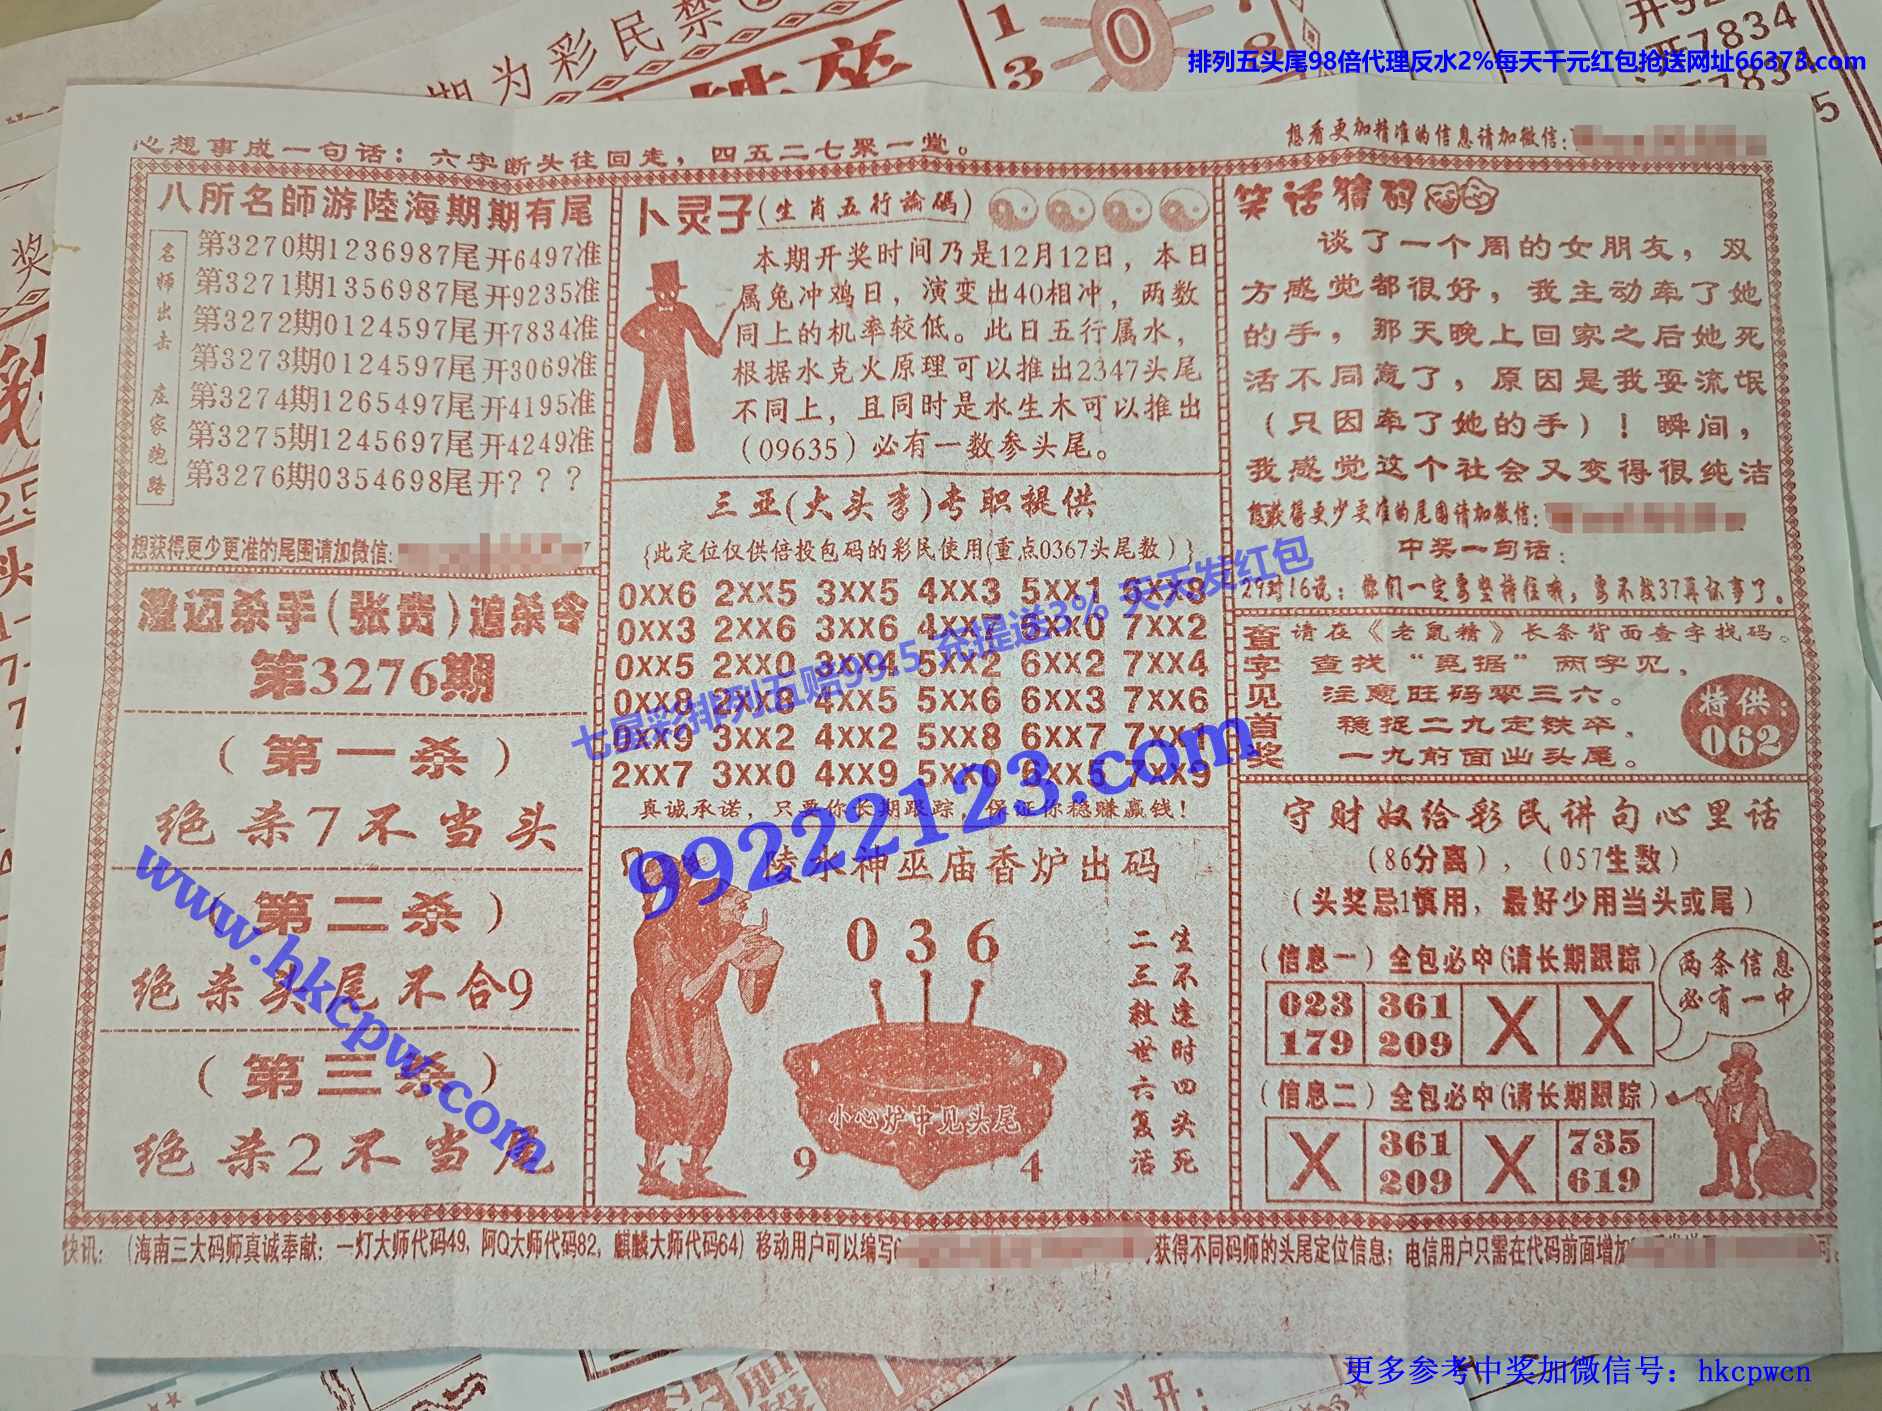 期为彩民禁
1
0
3
8
开7834
7834
5
排列五头尾98倍代理反水2%每天千元红包抢送网址66373.com
心想事成一句话：六字断头往回走，四五二七聚一堂。
想看更加精准的信息请加微信：
八所名師游陸海期期有尾
名师出击 庄家跑路
第3270期1236987尾开6497准
第3271期1356987尾开9235准
第3272期0124597尾开7834准
第3273期0124597尾开3069准
第3274期1265497尾开4195准
第3275期1245697尾开4249准
第3276期0354698尾开？？？
想获得更少更准的尾围请加微信:
澄迈杀手(张贵)追杀令
第3276期
（第一杀）
绝杀7不当头
（第二杀）
绝杀头尾不合9
（第三杀）
绝杀2不当尾
卜灵子(生肖五行論碼)
本期开奖时间乃是12月12日，本日
属兔冲鸡日，演变出40相冲，两数
同上的机率较低。此日五行属水，
根据水克火原理可以推出2347头尾
不同上，且同时是水生木可以推出
（09635）必有一数参头尾。
三亚(大头李)专职提供
{此定位仅供倍投包码的彩民使用(重点0367头尾数)}
0XX6 2XX5 3XX5 4XX3 5XX1 6XX8
0XX3 2XX6 3XX6 4XX7 5XX0 7XX2
0XX5 2XX0 3XX4 5XX2 6XX2 7XX4
0XX8 2XX8 4XX5 5XX6 6XX3 7XX6
0XX9 3XX2 4XX2 5XX8 6XX7 7XX1
2XX7 3XX0 4XX9 5XX0 6XX5 7XX9
真诚承诺，只要你长期跟踪，保证你稳赚赢钱！
七星彩排列五赔99.5 充提送3% 天天发红包
99222123.com
www.hkcpw.com
陵水神巫庙香炉出码
0 3 6
小心炉中见头尾
9
4
生不逢时四头死
二三社世六复活
笑话猜码
谈了一个周的女朋友，双
方感觉都很好，我主动牵了她
的手，那天晚上回家之后她死
活不同意了，原因是我耍流氓
（只因牵了她的手）！瞬间，
我感觉这个社会又变得很纯洁
想获得更少更准的尾围请加微信:
中奖一句话：
29对16说：你们一定要坚持住哦，要不找37真坏事了。
查字见首奖
请在《老鼠精》长条背面查字找码。
查找“冤据”两字见，
注意旺码零三六。
稳捉二九定铁卒，
一九前面出头尾。
特供：
062
守财奴给彩民讲句心里话
（86分离），（057生数）
（头奖忌1慎用，最好少用当头或尾）
（信息一）全包必中(请长期跟踪)
023 361 X X
179 209
两条信息
必有一中
（信息二）全包必中(请长期跟踪)
X 361 X 735
209 619
快讯：（海南三大码师真诚奉献：一灯大师代码49, 阿Q大师代码82, 麒麟大师代码64）移动用户可以编写
获得不同码师的头尾定位信息；电信用户只需在代码前面增加
更多参考中奖加微信号：hkcpwcn